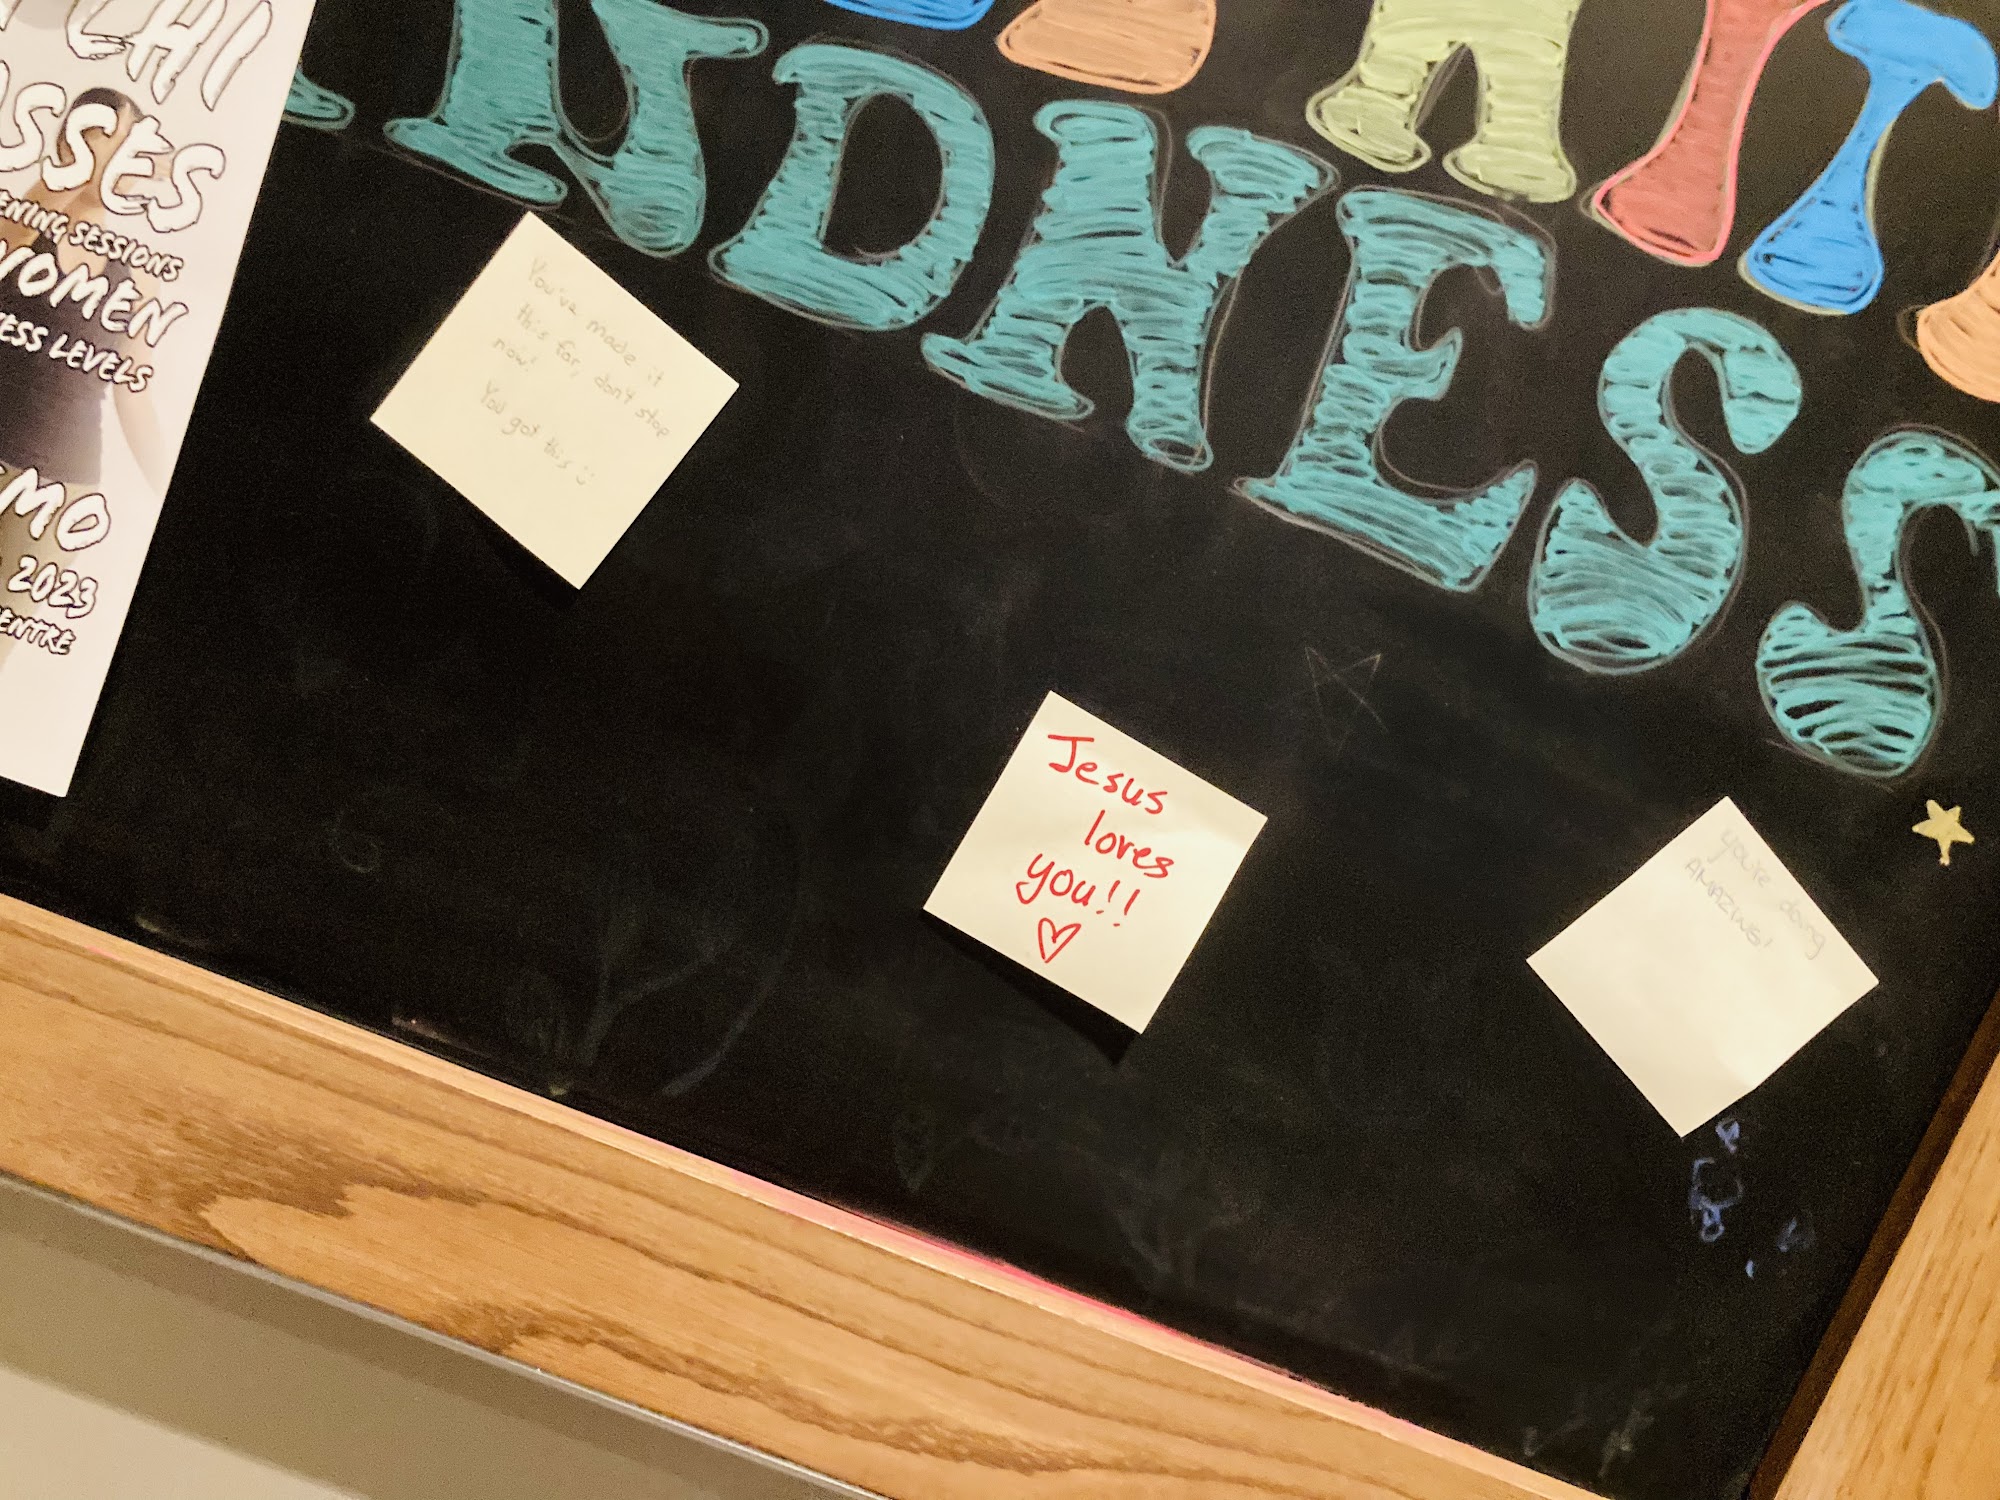 CHI
SSES
ENING SESSIONS
WOMEN
ESS LEVELS
MO
2023
ENTRE
NDNESS
You've made it
this far, don't stop
now!
You got this :)
Jesus
loves
you!!
♡
you're doing
AMAZING!